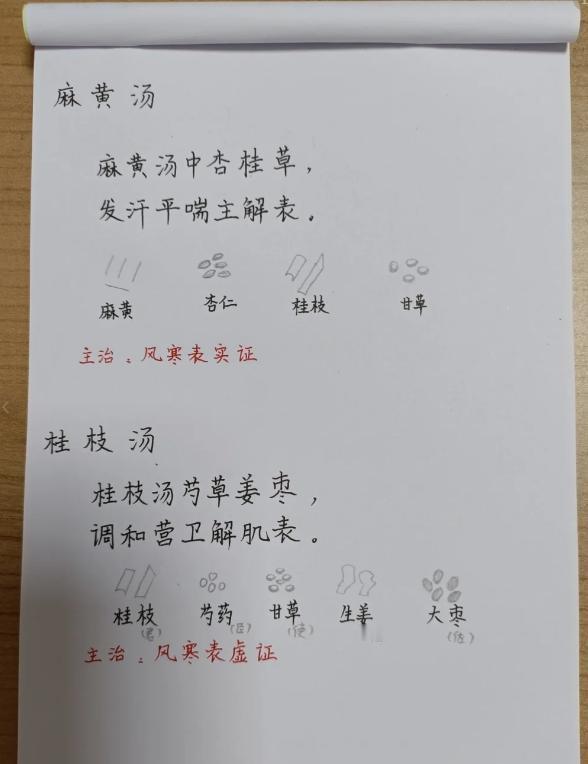 麻黄汤
麻黄汤中杏桂草，
发汗平喘主解表。
麻黄 杏仁 桂枝 甘草
主治：风寒表实证
桂枝汤
桂枝汤芍草姜枣，
调和营卫解肌表。
桂枝 芍药 甘草 生姜 大枣
（君） （臣） （使） （佐）
主治：风寒表虚证